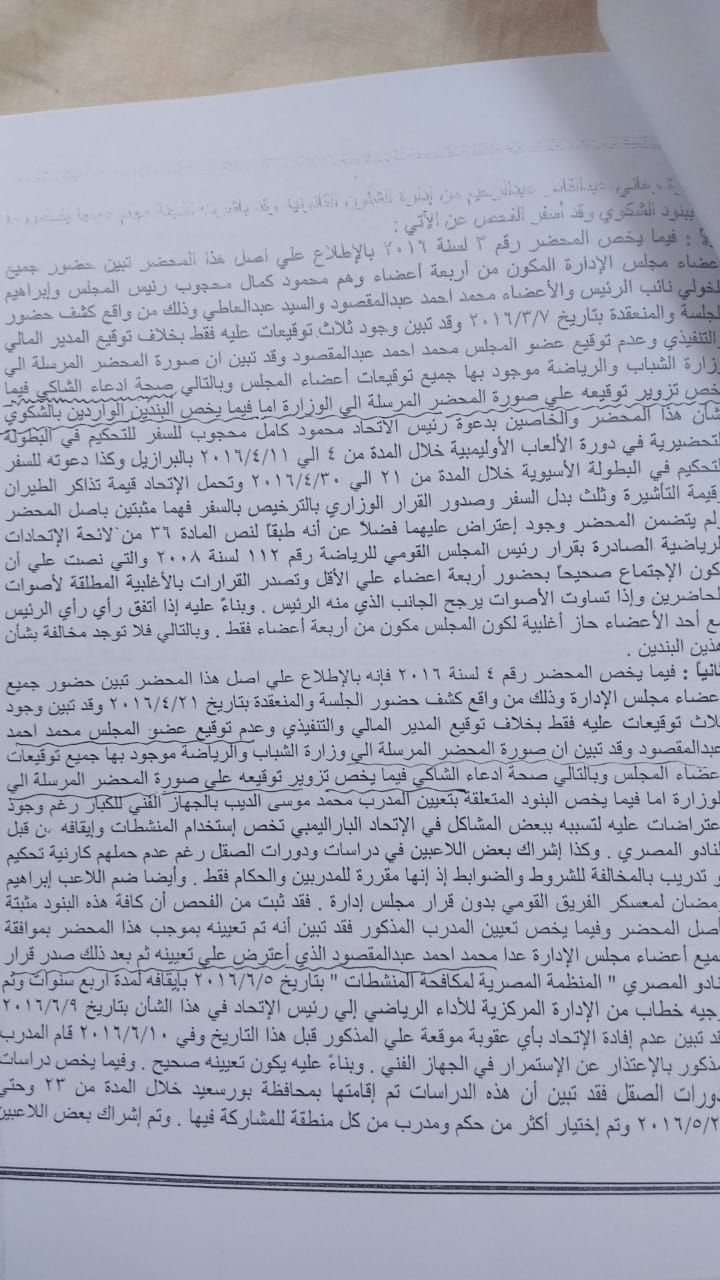 عبدالقادر عبدالرحيم من إدارة الشئون القانونية وقد
ببنود الشكوي وقد أسفر الفحص عن الآتي :
: فيما يخص المحضر رقم ٣ لسنة ٢٠١٦ بالإطلاع علي اصل هذا المحضر تبين حضور جميع
عضاء مجلس الإدارة المكون من أربعة أعضاء وهم محمود كمال محجوب رئيس المجلس وإبراهيم
لخولي نائب الرئيس والأعضاء محمد احمد عبدالمقصود والسيد عبدالعاطي وذلك من واقع كشف حضور
لجلسة والمنعقدة بتاريخ ٢٠١٦/٣/٧ وقد تبين وجود ثلاث توقيعات عليه فقط بخلاف توقيع المدير المالي
والتنفيذي وعدم توقيع عضو المجلس محمد احمد عبدالمقصود وقد تبين ان صورة المحضر المرسلة الي
وزارة الشباب والرياضة موجود بها جميع توقيعات أعضاء المجلس وبالتالي صحة ادعاء الشاكي فيما
خص تزوير توقيعه علي صورة المحضر المرسلة الي الوزارة اما فيما يخص البندين الواردين بالشكوي
شأن هذا المحضر والخاصين بدعوة رئيس الاتحاد محمود كامل محجوب للسفر للتحكيم في البطولة
لتحضيرية في دورة الألعاب الأوليمبية خلال المدة من ٤ الي ٢٠١٦/٤/١١ بالبرازيل وكذا دعوته للسفر
لتحكيم في البطولة الأسيوية خلال المدة من ٢١ الي ٢٠١٦/٤/٣٠ وتحمل الإتحاد قيمة تذاكر الطيران
قيمة التأشيرة وثلث بدل السفر وصدور القرار الوزاري بالترخيص بالسفر فهما مثبتين باصل المحضر
لم يتضمن المحضر وجود إعتراض عليهما فضلاً عن أنه طبقاً لنص المادة ٣٦ من لائحة الإتحادات
لرياضية الصادرة بقرار رئيس المجلس القومي للرياضة رقم ١١٢ لسنة ٢٠٠٨ والتي نصت علي أن
كون الإجتماع صحيحاً بحضور أربعة اعضاء علي الأقل وتصدر القرارات بالأغلبية المطلقة لأصوات
لحاضرين وإذا تساوت الأصوات يرجح الجانب الذي منه الرئيس . وبناءً عليه إذا أتفق رأي رأي الرئيس
مع أحد الأعضاء حاز أغلبية لكون المجلس مكون من أربعة أعضاء فقط . وبالتالي فلا توجد مخالفة بشأن
هذين البندين .
ثانياً : فيما يخص المحضر رقم ٤ لسنة ٢٠١٦ فإنه بالإطلاع علي اصل هذا المحضر تبين حضور جميع
عضاء مجلس الإدارة وذلك من واقع كشف حضور الجلسة والمنعقدة بتاريخ ٢٠١٦/٤/٢١ وقد تبين وجود
ثلاث توقيعات عليه فقط بخلاف توقيع المدير المالي والتنفيذي وعدم توقيع عضو المجلس محمد احمد
عبدالمقصود وقد تبين ان صورة المحضر المرسلة الي وزارة الشباب والرياضة موجود بها جميع توقيعات
عضاء المجلس وبالتالي صحة ادعاء الشاكي فيما يخص تزوير توقيعه علي صورة المحضر المرسلة الي
لوزارة اما فيما يخص البنود المتعلقة بتعيين المدرب محمد موسى الديب بالجهاز الفني للكبار رغم وجود
عتراضات عليه لتسببه ببعض المشاكل في الإتحاد الباراليمبي تخص إستخدام المنشطات وإيقافه من قبل
لنادو المصري . وكذا إشراك بعض اللاعبين في دراسات ودورات الصقل رغم عدم حملهم كارنية تحكيم
و تدريب بالمخالفة للشروط والضوابط إذ إنها مقررة للمدربين والحكام فقط . وأيضا ضم اللاعب إبراهيم
رمضان لمعسكر الفريق القومي بدون قرار مجلس إدارة . فقد ثبت من الفحص أن كافة هذه البنود مثبتة
أصل المحضر وفيما يخص تعيين المدرب المذكور فقد تبين أنه تم تعيينه بموجب هذا المحضر بموافقة
جميع أعضاء مجلس الإدارة عدا محمد احمد عبدالمقصود الذي أعترض علي تعيينه ثم بعد ذلك صدر قرار
نادو المصري " المنظمة المصرية لمكافحة المنشطات " بتاريخ ٢٠١٦/٦/٥ بإيقافه لمدة اربع سنوات وتم
وجيه خطاب من الإدارة المركزية للأداء الرياضي إلي رئيس الإتحاد في هذا الشأن بتاريخ ٢٠١٦/٦/٩
قد تبين عدم إفادة الإتحاد بأي عقوبة موقعة علي المذكور قبل هذا التاريخ وفي ٢٠١٦/٦/١٠ قام المدرب
مذكور بالإعتذار عن الإستمرار في الجهاز الفني . وبناءً عليه يكون تعيينه صحيح . وفيما يخص دراسات
دورات الصقل فقد تبين أن هذه الدراسات تم إقامتها بمحافظة بورسعيد خلال المدة من ٢٣ وحتي
٢٠١٦/٥/٢ وتم إختيار أكثر من حكم ومدرب من كل منطقة للمشاركة فيها . وتم إشراك بعض اللاعبين